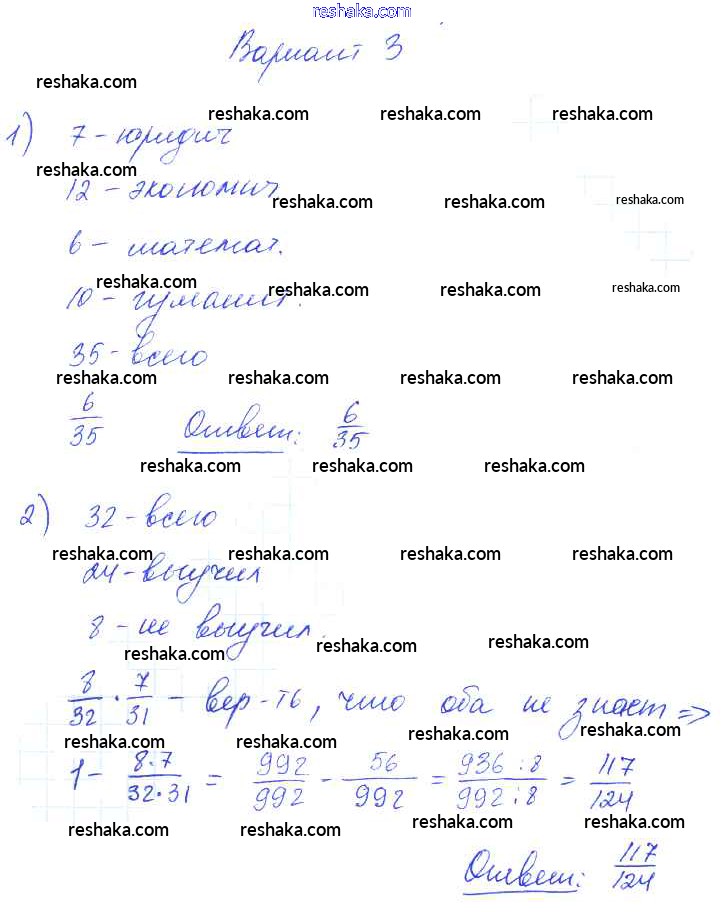 reshaka.com
Вариант 3
reshaka.com
reshaka.com reshaka.com reshaka.com
1) 7 - юридич
reshaka.com
12 - экономич
reshaka.com reshaka.com reshaka.com
6 - математ.
reshaka.com reshaka.com reshaka.com reshaka.com
10 - гуманит.
35 - всего
reshaka.com reshaka.com reshaka.com reshaka.com
6/35 Ответ: 6/35
reshaka.com reshaka.com reshaka.com
2) 32 - всего
reshaka.com reshaka.com reshaka.com reshaka.com
24 - выучил
8 - не выучил.
reshaka.com reshaka.com reshaka.com
8/32 · 7/31 - вер-ть, что оба не знают =>
reshaka.com reshaka.com reshaka.com reshaka.com
1 - 8·7/32·31 = 992/992 - 56/992 = 936:8/992:8 = 117/124
reshaka.com reshaka.com reshaka.com reshaka.com
Ответ: 117/124